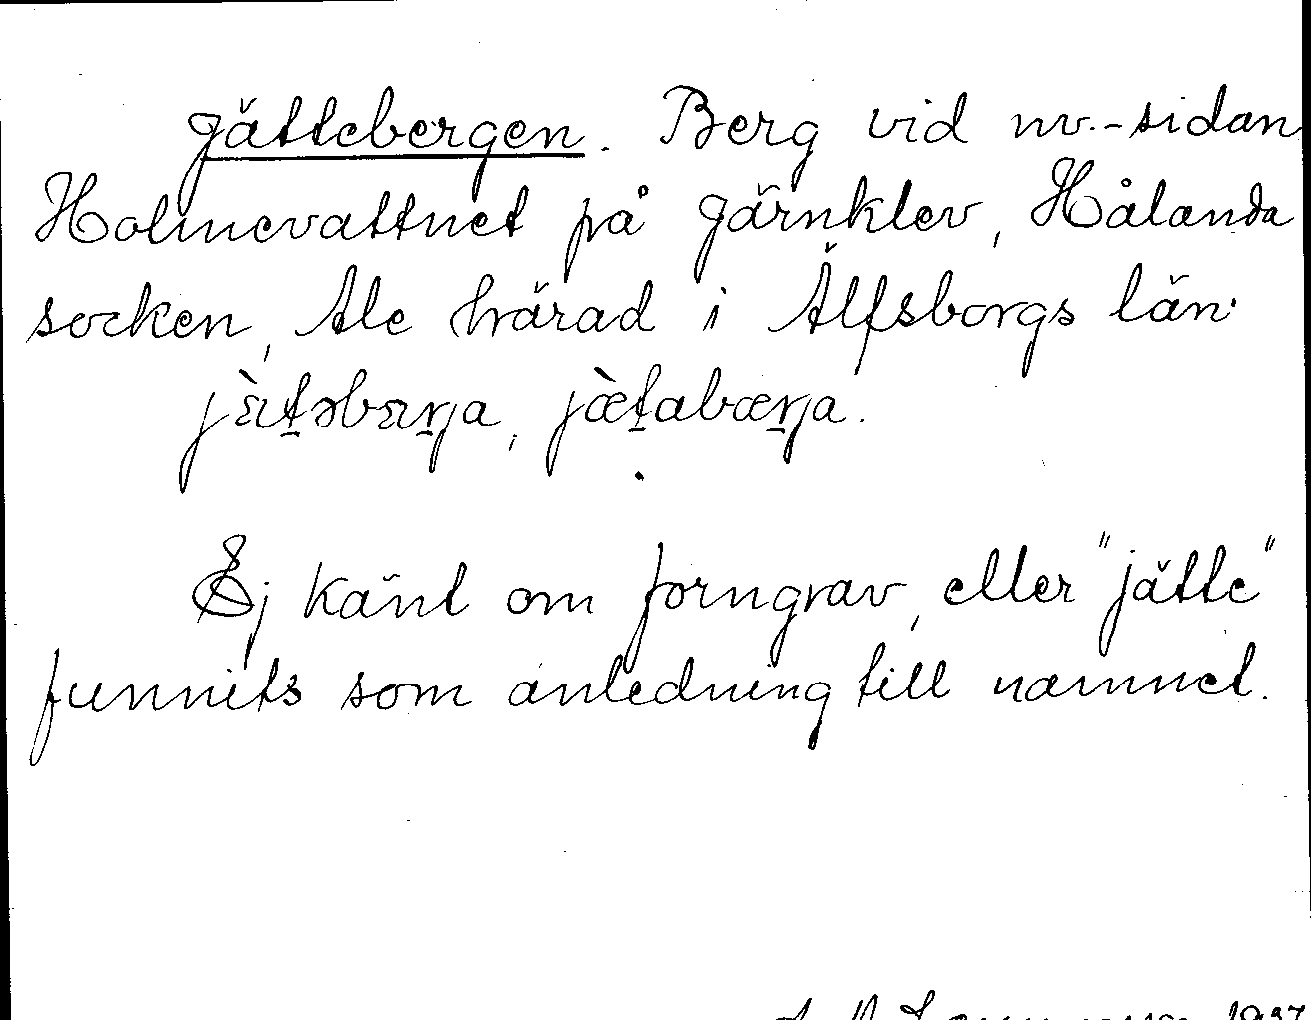 Jättebergen. Berg vid nv.-sidan
Holmevattnet på Järnklev, Hålanda
socken, Ale härad i Älfsborgs län.
jæ̀t̠əbær̠ja, jæ̀t̠abær̠ja.
Ej känt om forngrav, eller "jätte"
funnits som anledning till namnet.
1937